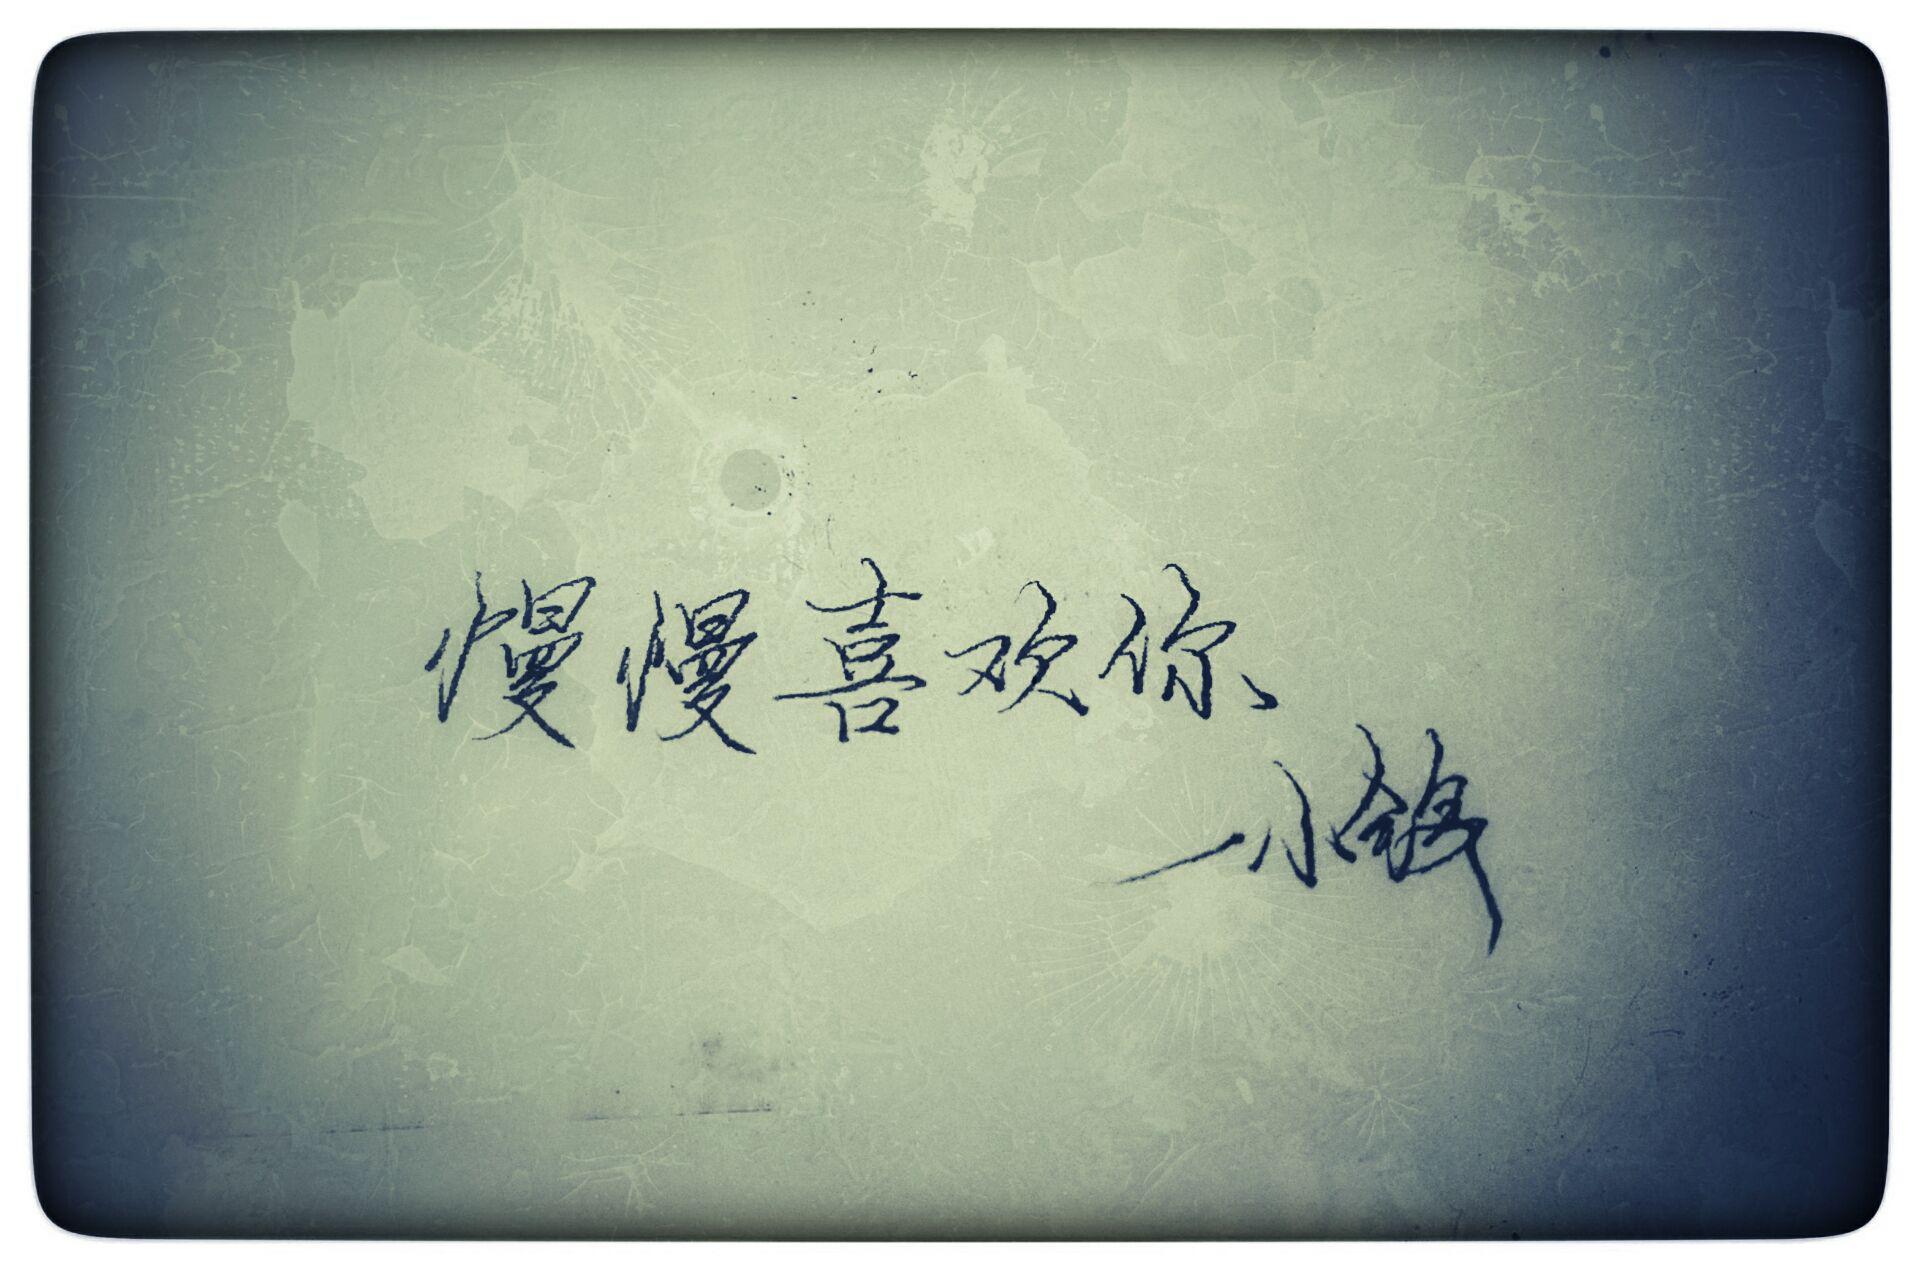 慢慢喜欢你、
一小